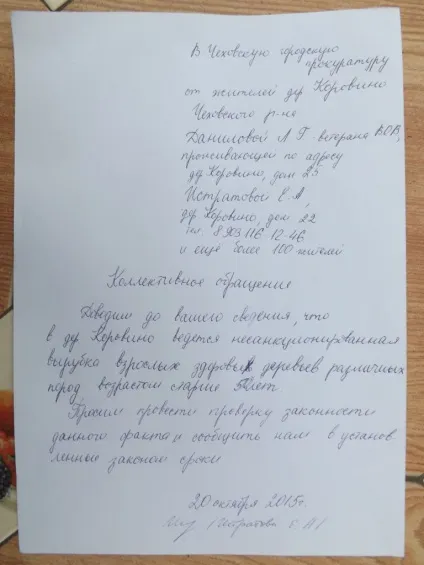 В Чеховскую городскую
прокуратуру
от жителей др Коровино
Чеховского р-на
Даниловой Л Г ветерана ВОВ,
проживающей по адресу
др Коровино, дом 25
Истратовой Е.А,
др. Коровино, дом 22
тел. 8 903 116 12-46
и ещё более 100 жителей
Коллективное обращение
Доводим до вашего сведения, что
в др Коровино ведётся несанкционированная
вырубка взрослых здоровых деревьев различных
пород возрастом старше лет.
Просим провести проверку законности
данного факта и сообщить нам в установ
ленные законом сроки
20 октября 2015г.
/Истратова Е.А/